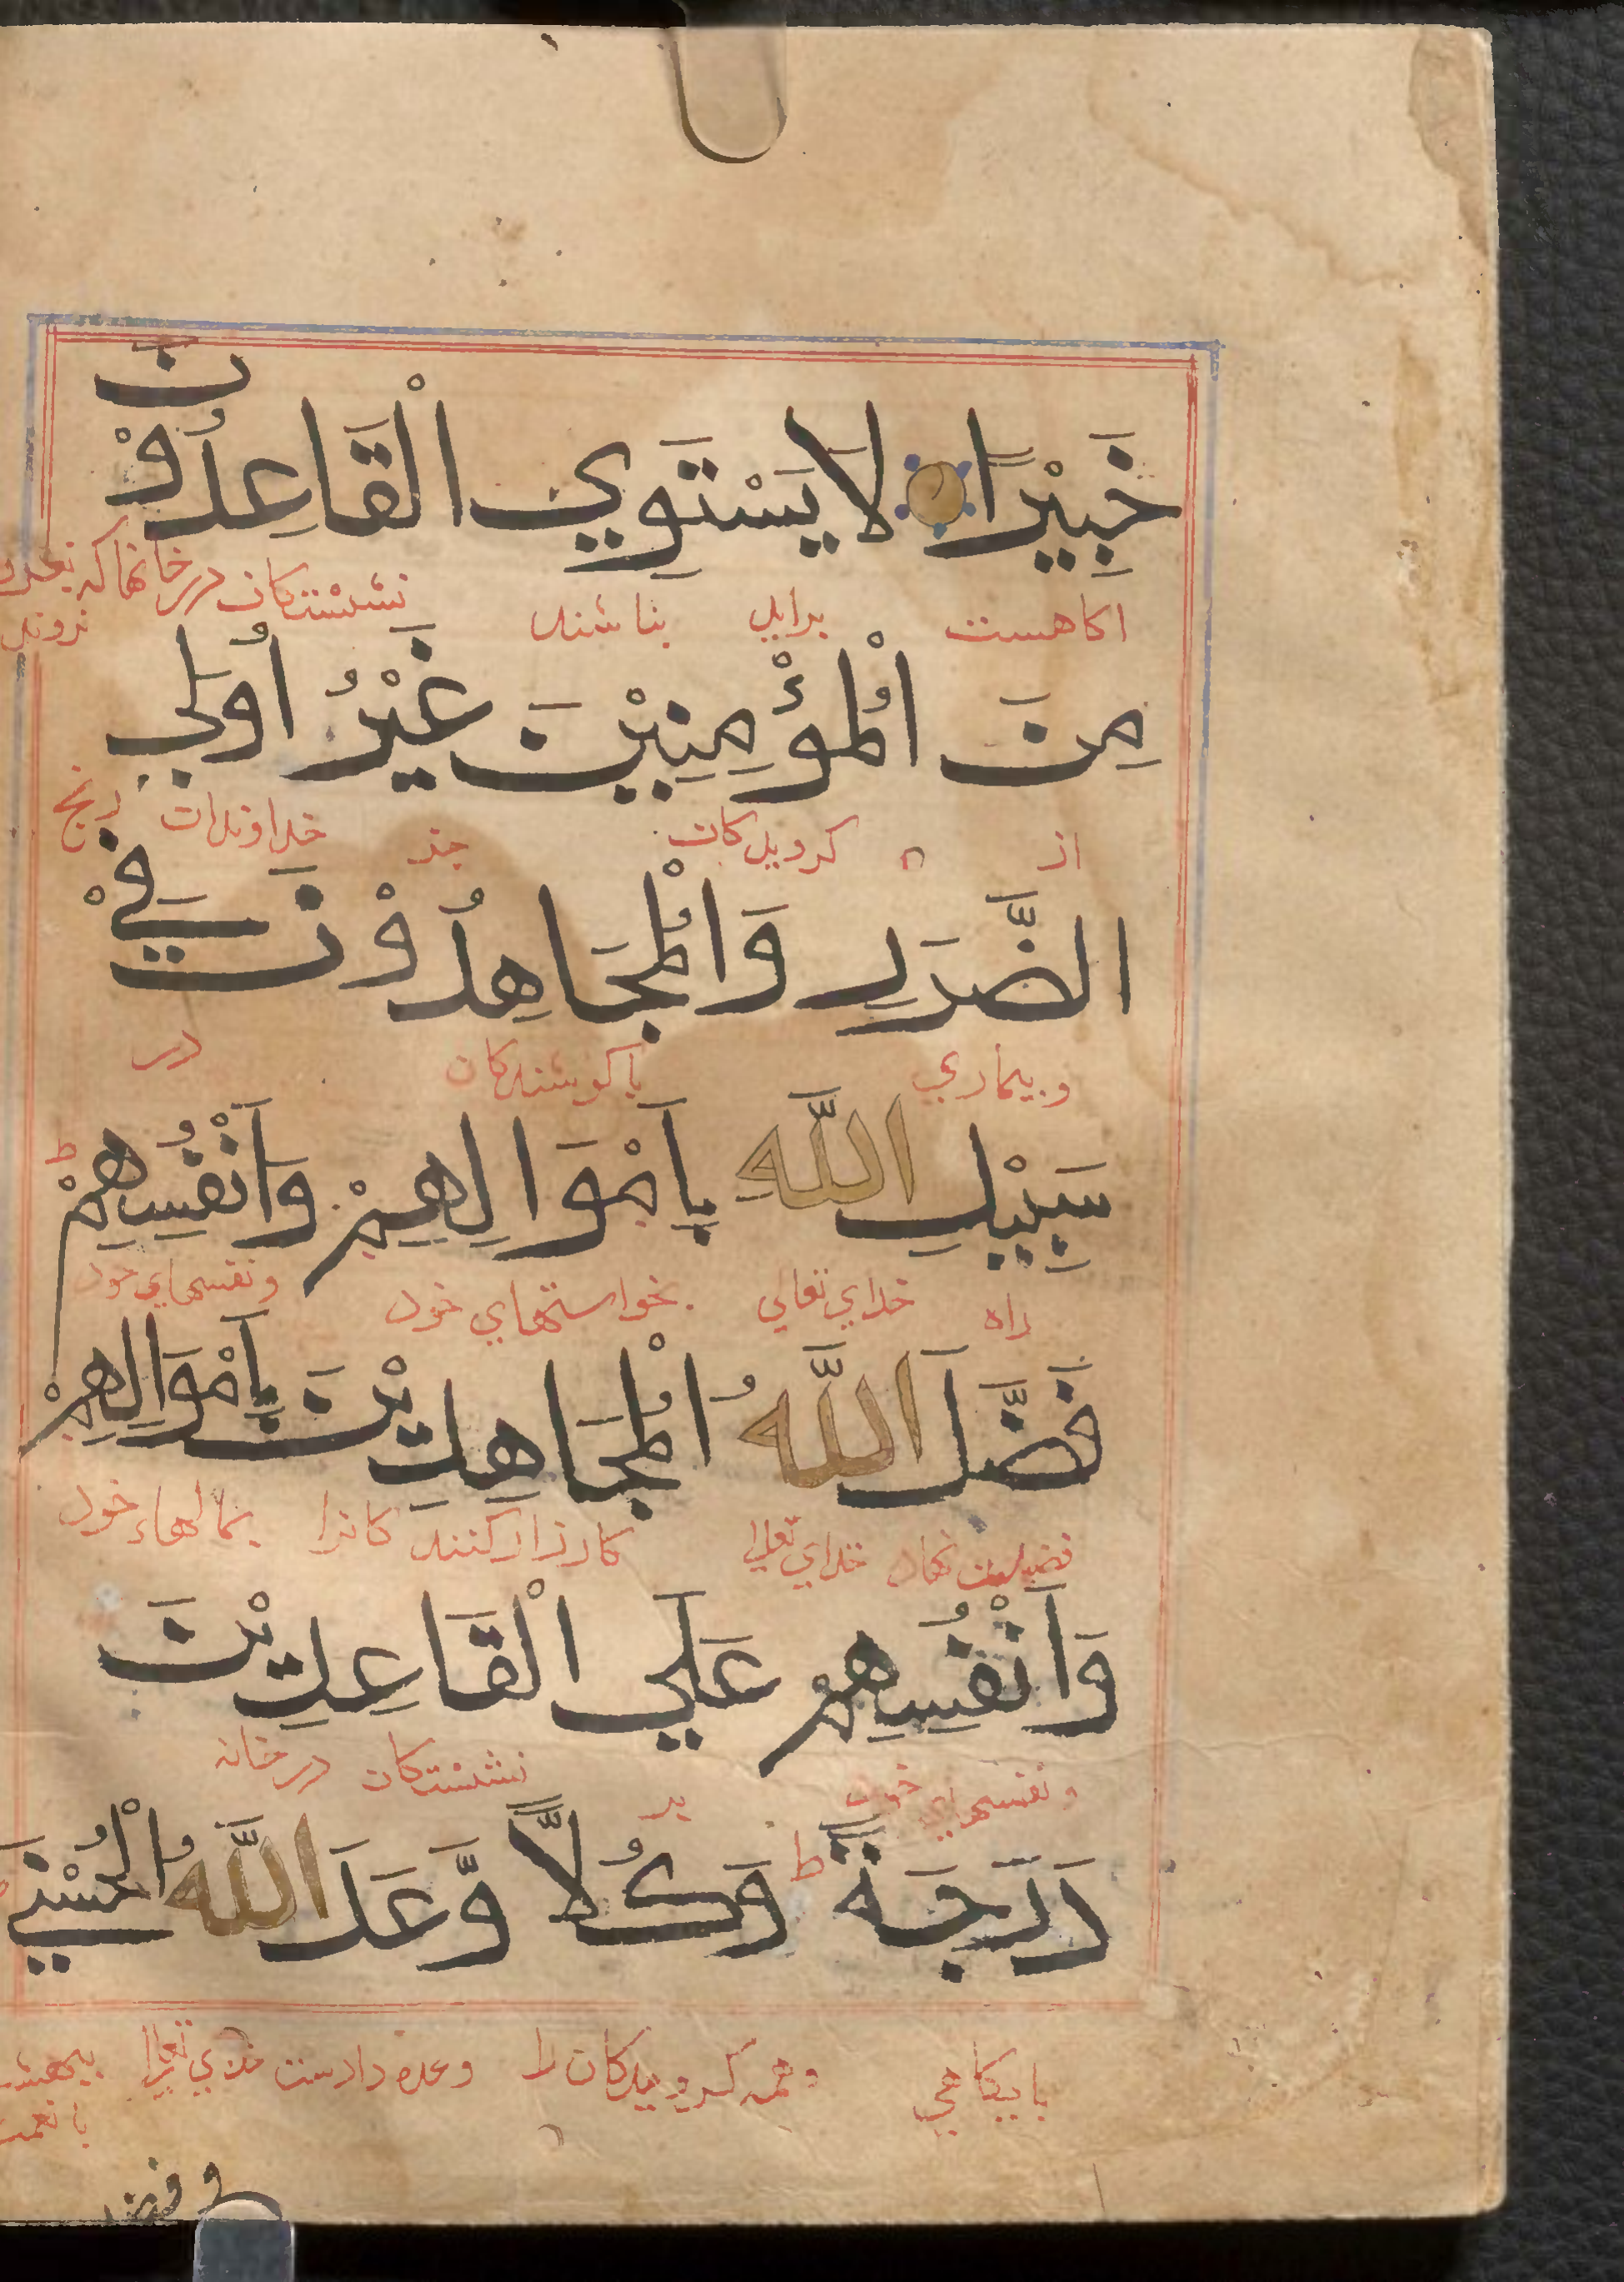 خَبِيْرًا لَا يَسْتَوِي الْقَاعِدُوْنَ
اکاهست برابر بناشند نشستکان در خانها که بغزو نروند
مِنَ الْمُؤْمِنِيْنَ غَيْرُ اُولِي
از کرویدکان جز خداوندان رنج
الضَّرَرِ وَالْمُجَاهِدُوْنَ فِيْ
وبیماري با کوشندکان در
سَبِيْلِ اللَّهِ بِاَمْوَالِهِمْ وَاَنْفُسِهِمْ ط
راه خداي تعالي بخواستهاي خود ونفسهاي خود
فَضَّلَ اللَّهُ الْمُجَاهِدِيْنَ بِاَمْوَالِهِمْ
فضیلت نهاد خداي تعالي کارزار کنندکانرا بمالهاء خود
وَاَنْفُسِهِمْ عَلَي الْقَاعِدِيْنَ
ونفسهاي خود بر نشستکان در خانه
دَرَجَةً ط وَكُلًّا وَّعَدَ اللَّهُ الْحُسْنَي
باپیکاهي وهمه کرویدکان را وعده دادست خداي تعالي ببهشت با نعمت
وفضل